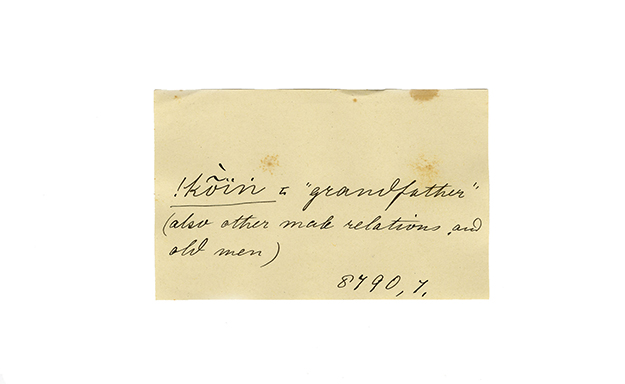 !kõ̀ïṅ = "grandfather"
(also other male relations, and
old men)
8790, 7.